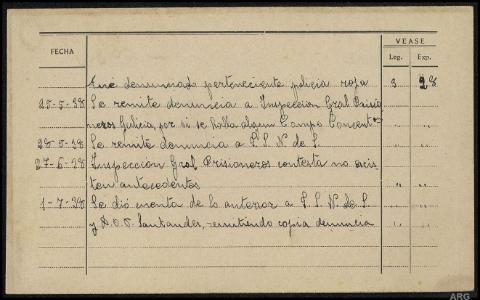 VEASE
FECHA Leg. Exp.
Fué denunciado perteneciente policia roja 3 28
25-5-38 Se remite denuncia a Inspeccion Gral Prisio
neros Galicia, por si se halla algun Campo Concenton " "
28-5-38 Se remite denuncia a S.S. N. de S. " "
27-6-38 Inspeccion Gral Prisioneros contesta no exis
ten antecedentes " "
1-7-38 Se dió cuenta de lo anterior a S.S. N. de S.
y D.O.P. Santander, remitiendo copia denuncia " "
ARG